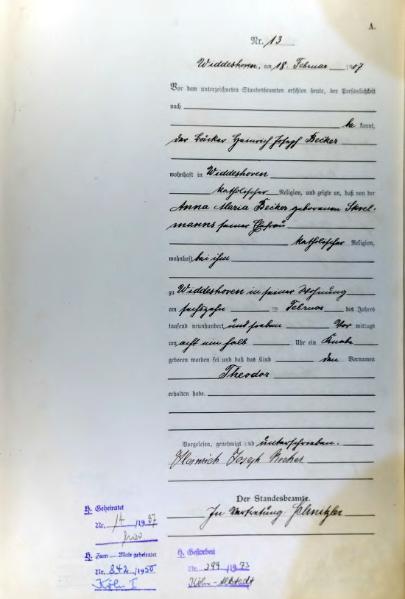 A.
Nr. 13
Widdeshoven, am 18. Februar 1907
Vor dem unterzeichneten Standesbeamten erschien heute, der Persönlichkeit
nach
be kannt,
der Bäcker Heinrich Joseph Becker
wohnhaft in Widdeshoven
katholischer Religion, und zeigte an, daß von der
Anna Maria Becker geborenen
seiner Ehefrau
katholischer Religion,
wohnhaft bei ihm
zu Widdeshoven in seiner Wohnung
am sechszehn ten Februar des Jahres
tausend neunhundert und sieben Vor mittags
um acht ein halb Uhr ein Knabe
geboren worden sei und daß das Kind den Vornamen
Theodor
erhalten habe.
Vorgelesen, genehmigt und unterschrieben.
Heinrich Joseph Becker
Der Standesbeamte.
In Vertretung
H. Geheiratet
Nr. 14 /1937
H. Zum Male geheiratet
Nr. 842 /1950
Köln I
H. Gestorben
Nr. 299 /1973
Köln-Altstadt